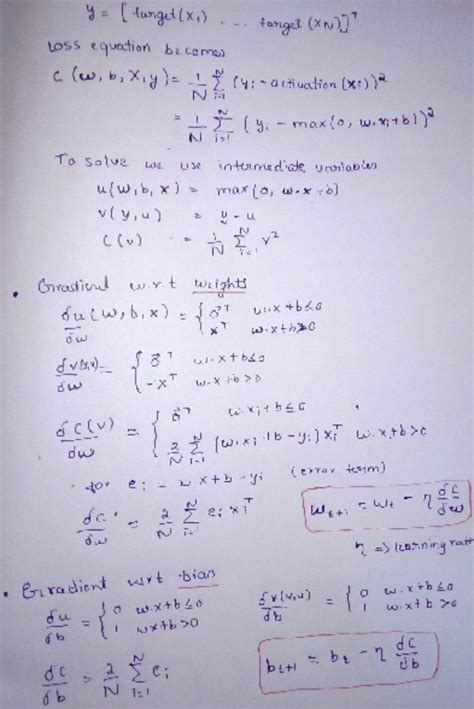 y = [ target(x₁) ... target(x_N)]ᵀ
loss equation becomes
C (w, b, X, y) = 1/N Σ_{i=1}^{N} (yᵢ - activation (xᵢ))²
= 1/N Σ_{i=1}^{N} (yᵢ - max(0, w·xᵢ+b))²
To solve we use intermediate variables
u(w, b, x) = max(0, w·x+b)
v(y, u) = y - u
C(v) = 1/N Σ_{i=1}^{N} v²
• Gradient w.r.t weights
∂u(w, b, x)/∂w = { 0⃗ᵀ w·x+b≤0
xᵀ w·x+b>0
∂v(y,u)/∂w = { 0⃗ᵀ w·x+b≤0
-xᵀ w·x+b>0
∂C(v)/∂w = { 0⃗ᵀ w·xᵢ+b≤0
2/N Σ_{i=1}^{N} (w·xᵢ+b-yᵢ)xᵢᵀ w·xᵢ+b>0
for eᵢ = w x+b-yᵢ (error term)
∂C/∂w = 2/N Σ_{i=1}^{N} eᵢ xᵢᵀ
w_{t+1} = w_t - η ∂C/∂w
η => learning rate
• Gradient wrt bias
∂u/∂b = { 0 w·x+b≤0
1 wx+b>0
∂v(y,u)/∂b = { 0 w·x+b≤0
1 w·x+b>0
∂C/∂b = 2/N Σ_{i=1}^{N} eᵢ
b_{t+1} = b_t - η ∂C/∂b